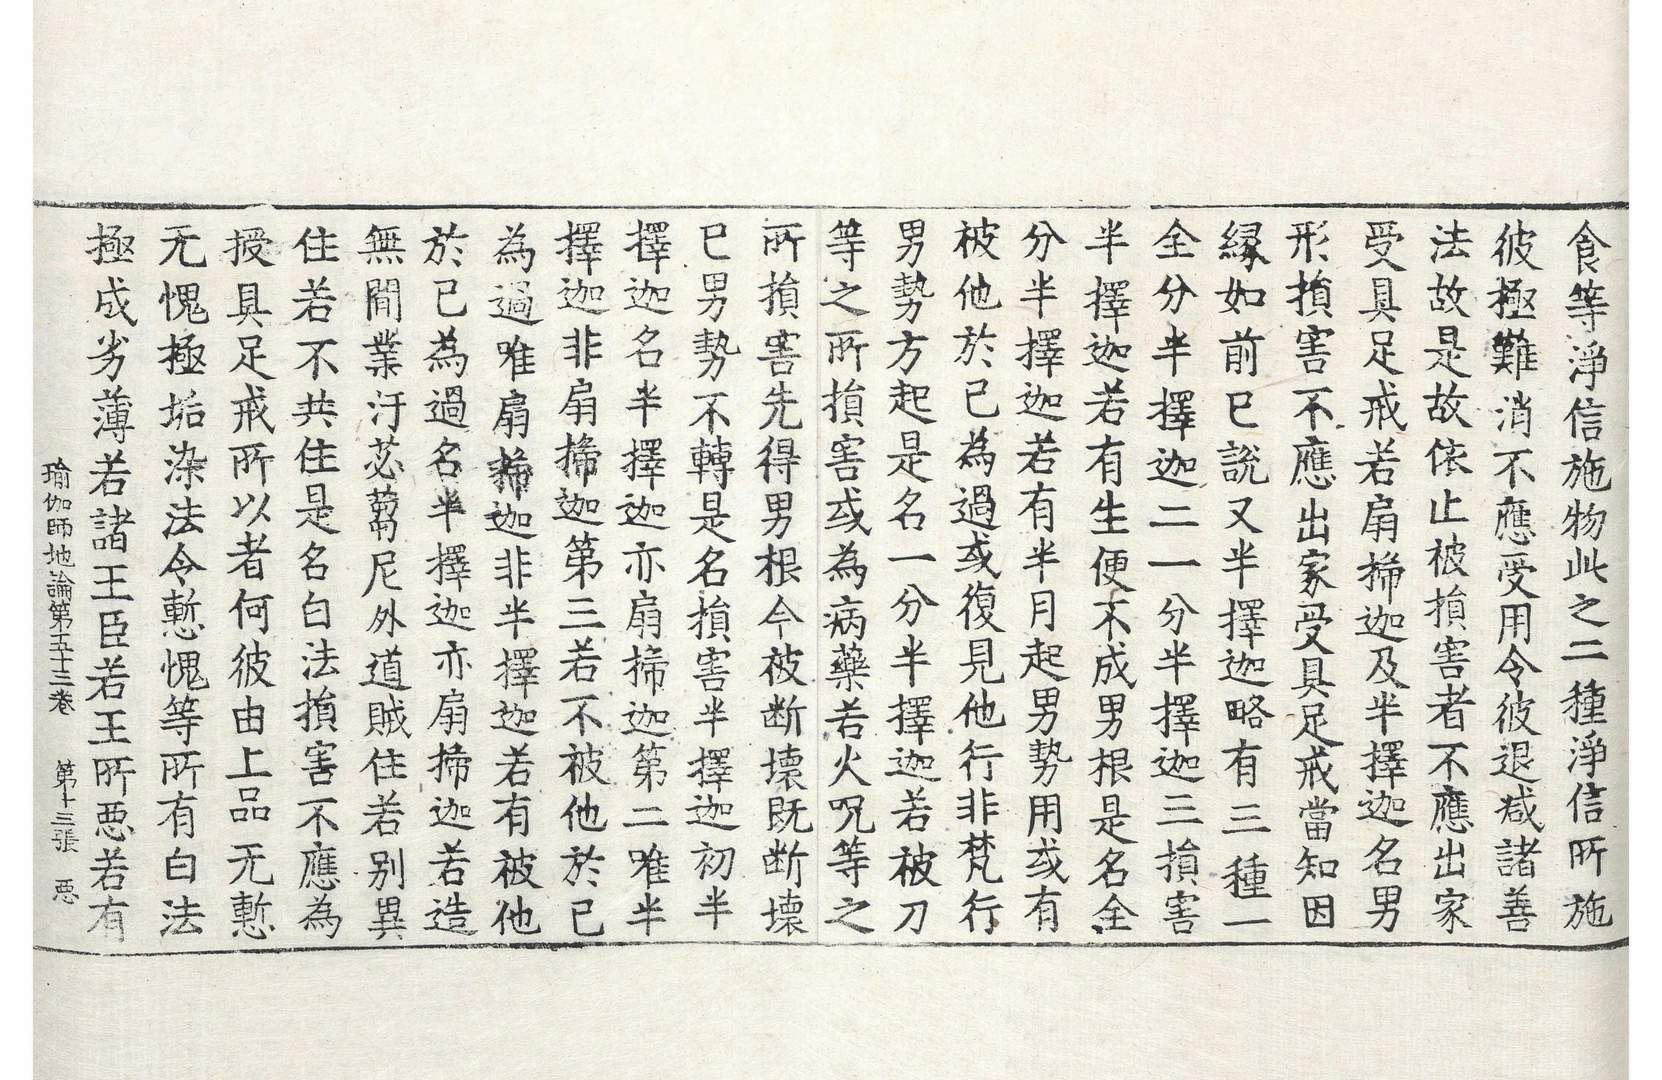 食等淨信施物此之二種淨信所施
彼極難消不應受用令彼退減諸善
法故是故依止被損害者不應出家
受具足戒若扇搋迦及半擇迦名男
形損害不應出家受具足戒當知因
緣如前已說又半擇迦略有三種一
全分半擇迦二一分半擇迦三損害
半擇迦若有生便不成男根是名全
分半擇迦若有半月起男勢用或有
被他於已為過或復見他行非梵行
男勢方起是名一分半擇迦若被刀
等之所損害或為病藥若火呪等之
所損害先得男根今被断壞既断壞
已男勢不轉是名損害半擇迦初半
擇迦名半擇迦亦扇搋迦第二唯半
擇迦非扇搋迦第三若不被他於已
為過唯扇搋迦非半擇迦若有被他
於已為過名半擇迦亦扇搋迦若造
無間業汙苾蒭尼外道賊住若別異
住若不共住是名白法損害不應為
授具足戒所以者何彼由上品无慙
无愧極垢染法令慙愧等所有白法
極成劣薄若諸王臣若王所惡若有
瑜伽師地論第五十三卷　第十三張　惡